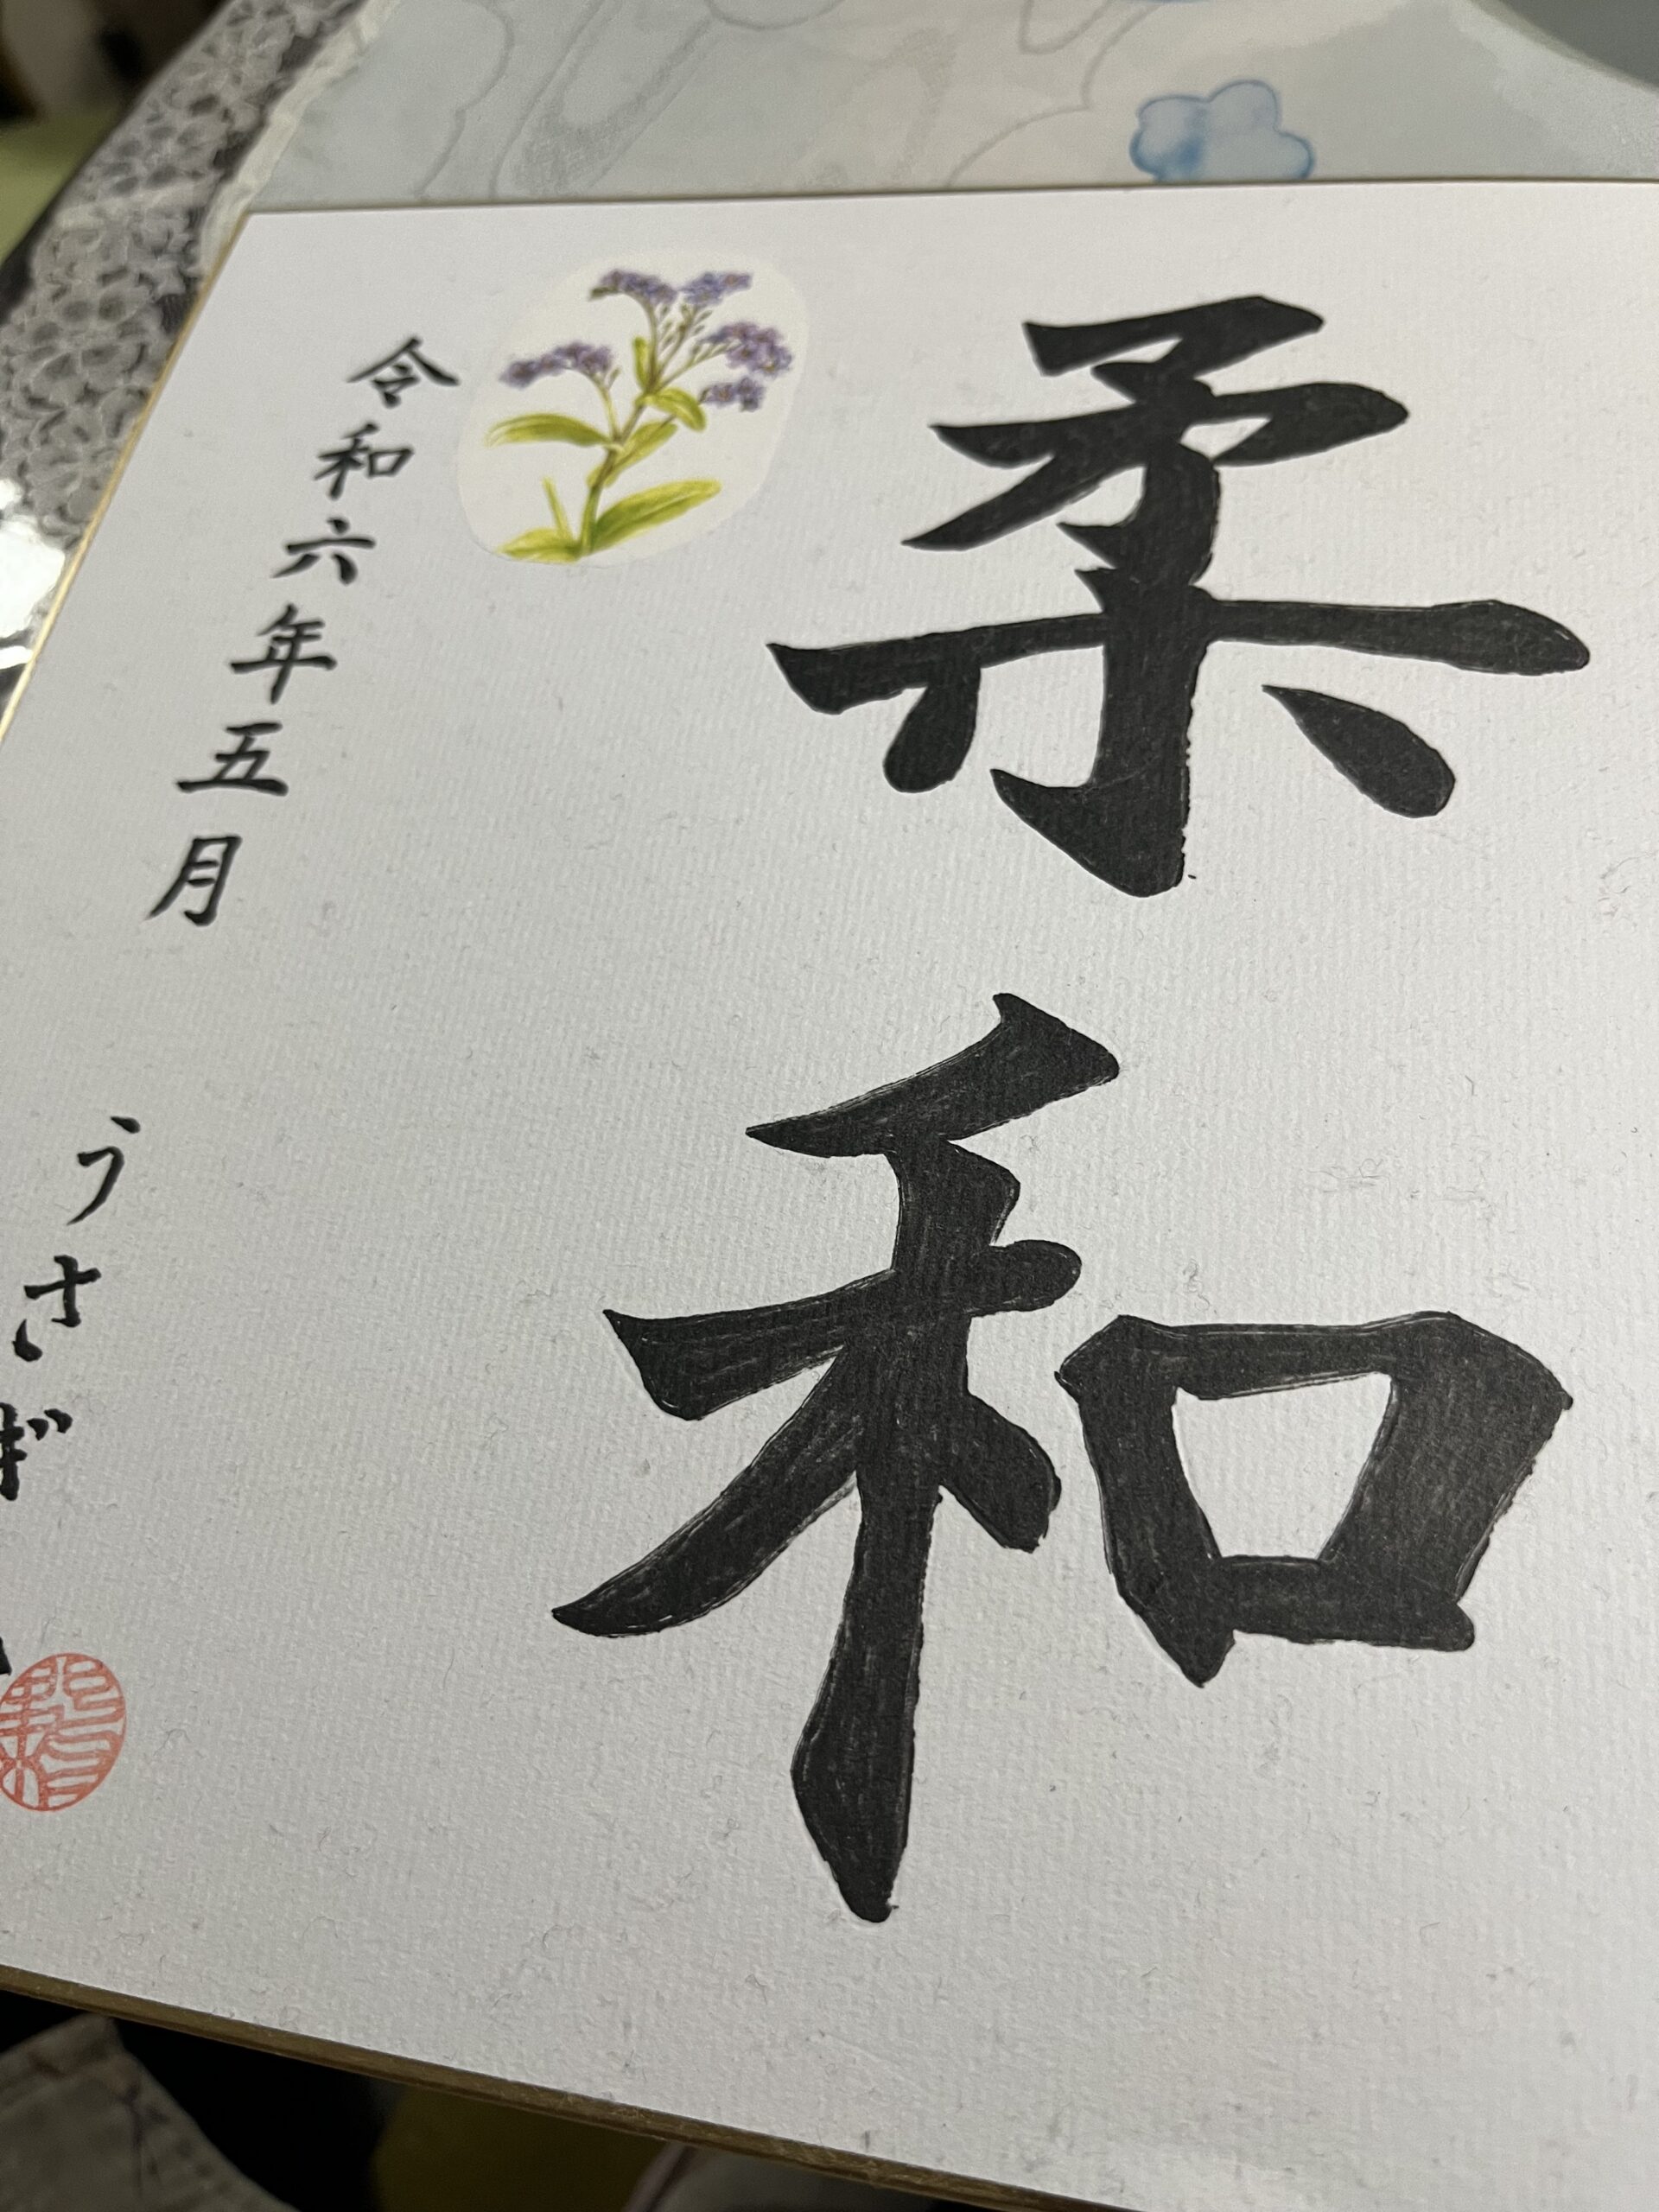 柔和
令和六年五月
うさぎ